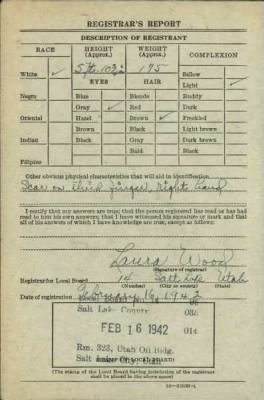 REGISTRAR'S REPORT
DESCRIPTION OF REGISTRANT
RACE HEIGHT (Approx.) WEIGHT (Approx.) COMPLEXION
White ✓ 5 ft. 10½ 175 Sallow
EYES HAIR Light ✓
Negro Blue Blonde Ruddy
Gray ✓ Red Dark
Oriental Hazel Brown ✓ Freckled
Brown Black Light brown
Indian Black Gray Dark brown
Bald Black
Filipino
Other obvious physical characteristics that will aid in identification
Scar on third finger, right hand
I certify that my answers are true; that the person registered has read or has had
read to him his own answers; that I have witnessed his signature or mark and that all
of his answers of which I have knowledge are true, except as follows:
Laura Wood
(Signature of registrar)
Registrar for Local Board 14 Salt Lake Utah
(Number) (City or county) (State)
Date of registration February 16, 1942
Salt Lake County 035
FEB 16 1942 014
Rm. 323, Utah Oil Bldg.
Salt Lake City, Utah
(The stamp of the Local Board having jurisdiction of the registrant
shall be placed in the above space)